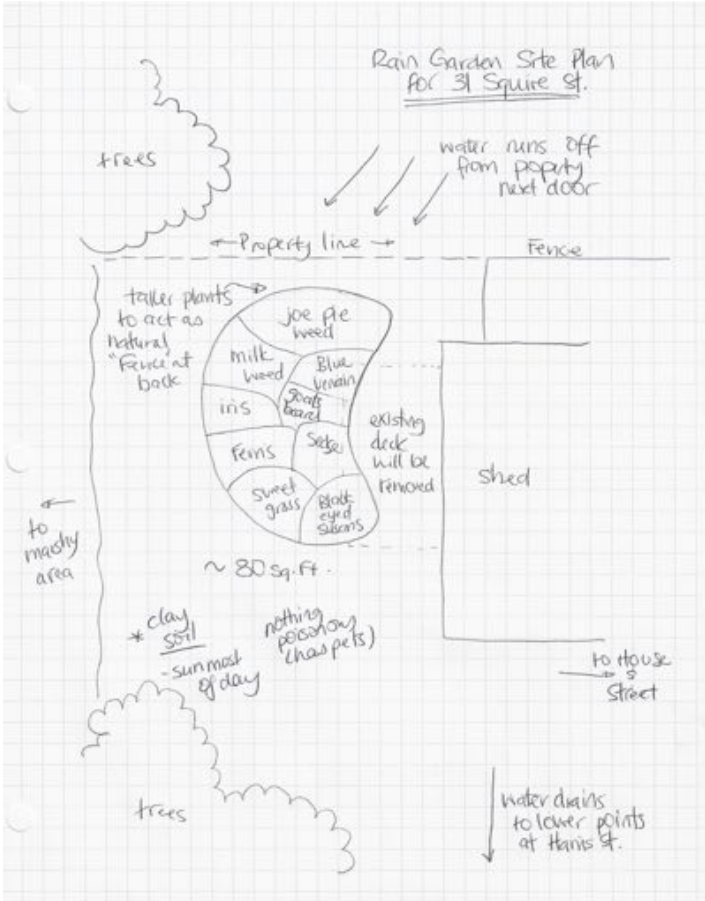 Rain Garden Site Plan
for 31 Squire St.
water runs off
from popety
next door
trees
← Property line →
Fence
taller plants
to act as
natural
"Fence" at
back
joe pie
weed
milk
weed
Blue
vervain
iris
goats
beard
Ferns
Sedge
sweet
grass
Black
eyed
Susans
existing
deck
will be
removed
Shed
to
marshy
area
~ 80 sq.ft.
* clay
soil
- sun most
of day
nothing
poisonous
(has pets)
to House
&
Street
trees
water drains
to lower points
at Harris St.